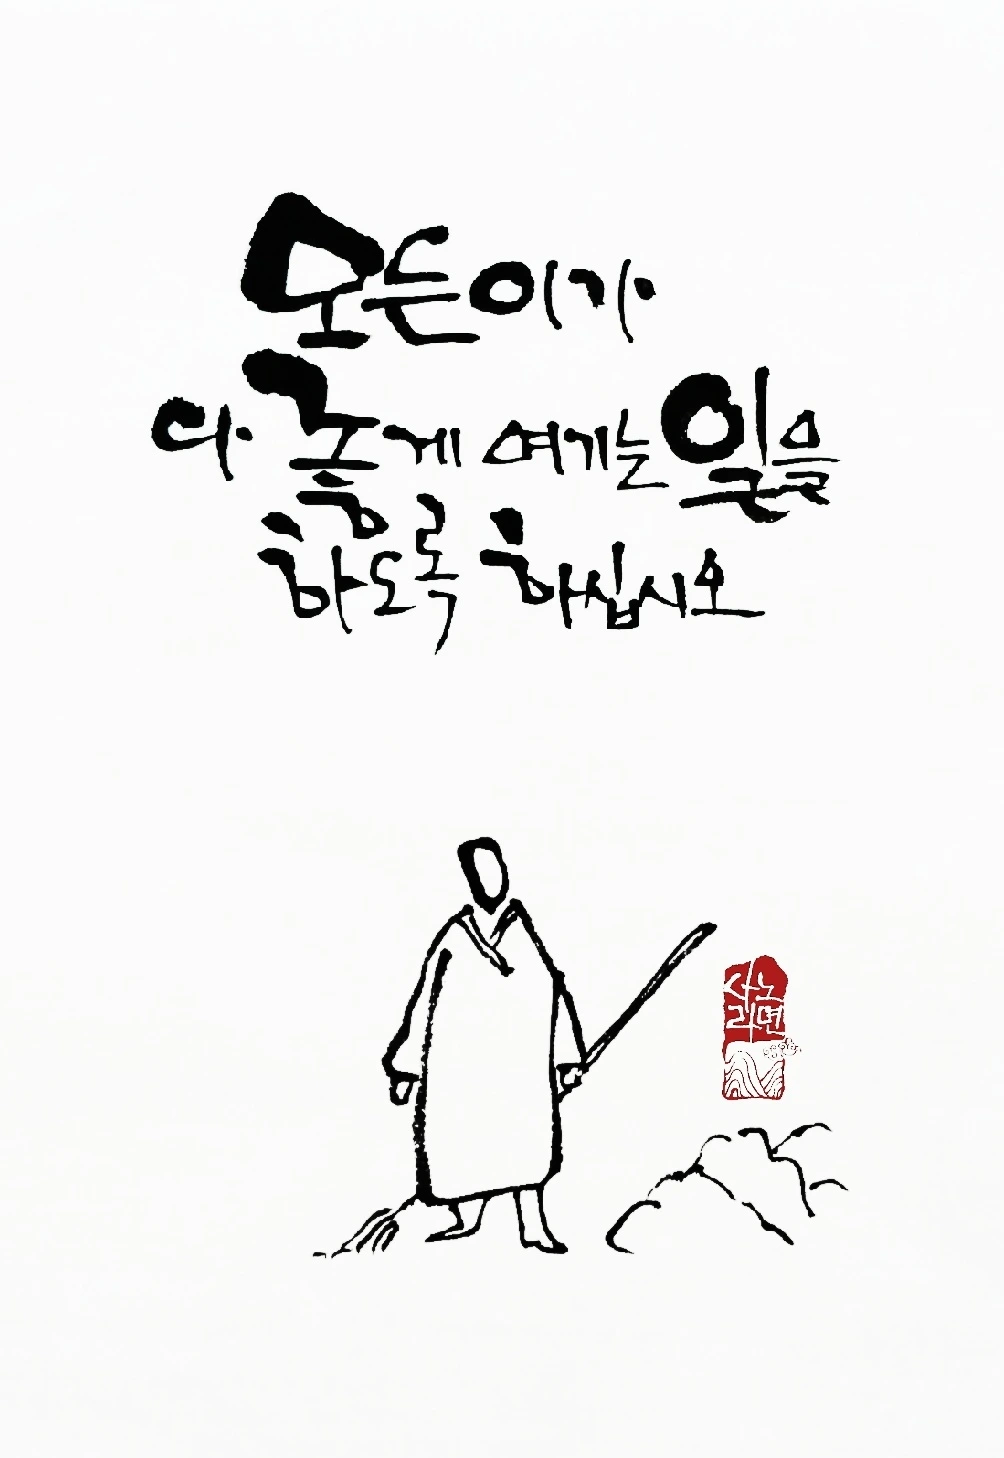 모든이가
다 좋게 여기는 일을
하도록 하십시오
사노
라면